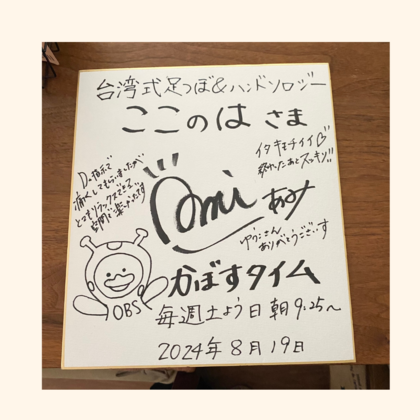 台湾式足つぼ&ハンドソロジー
ここのは さま
イタキモチイイ
終わったあとスッキリ!!
痛くしてもらいましたが
とてもリラックスできて
Ami あみ
ゆうこさん
ありがとうございます
かぼすタイム
OBS
毎週土よう日 朝9:25〜
2024年8月19日